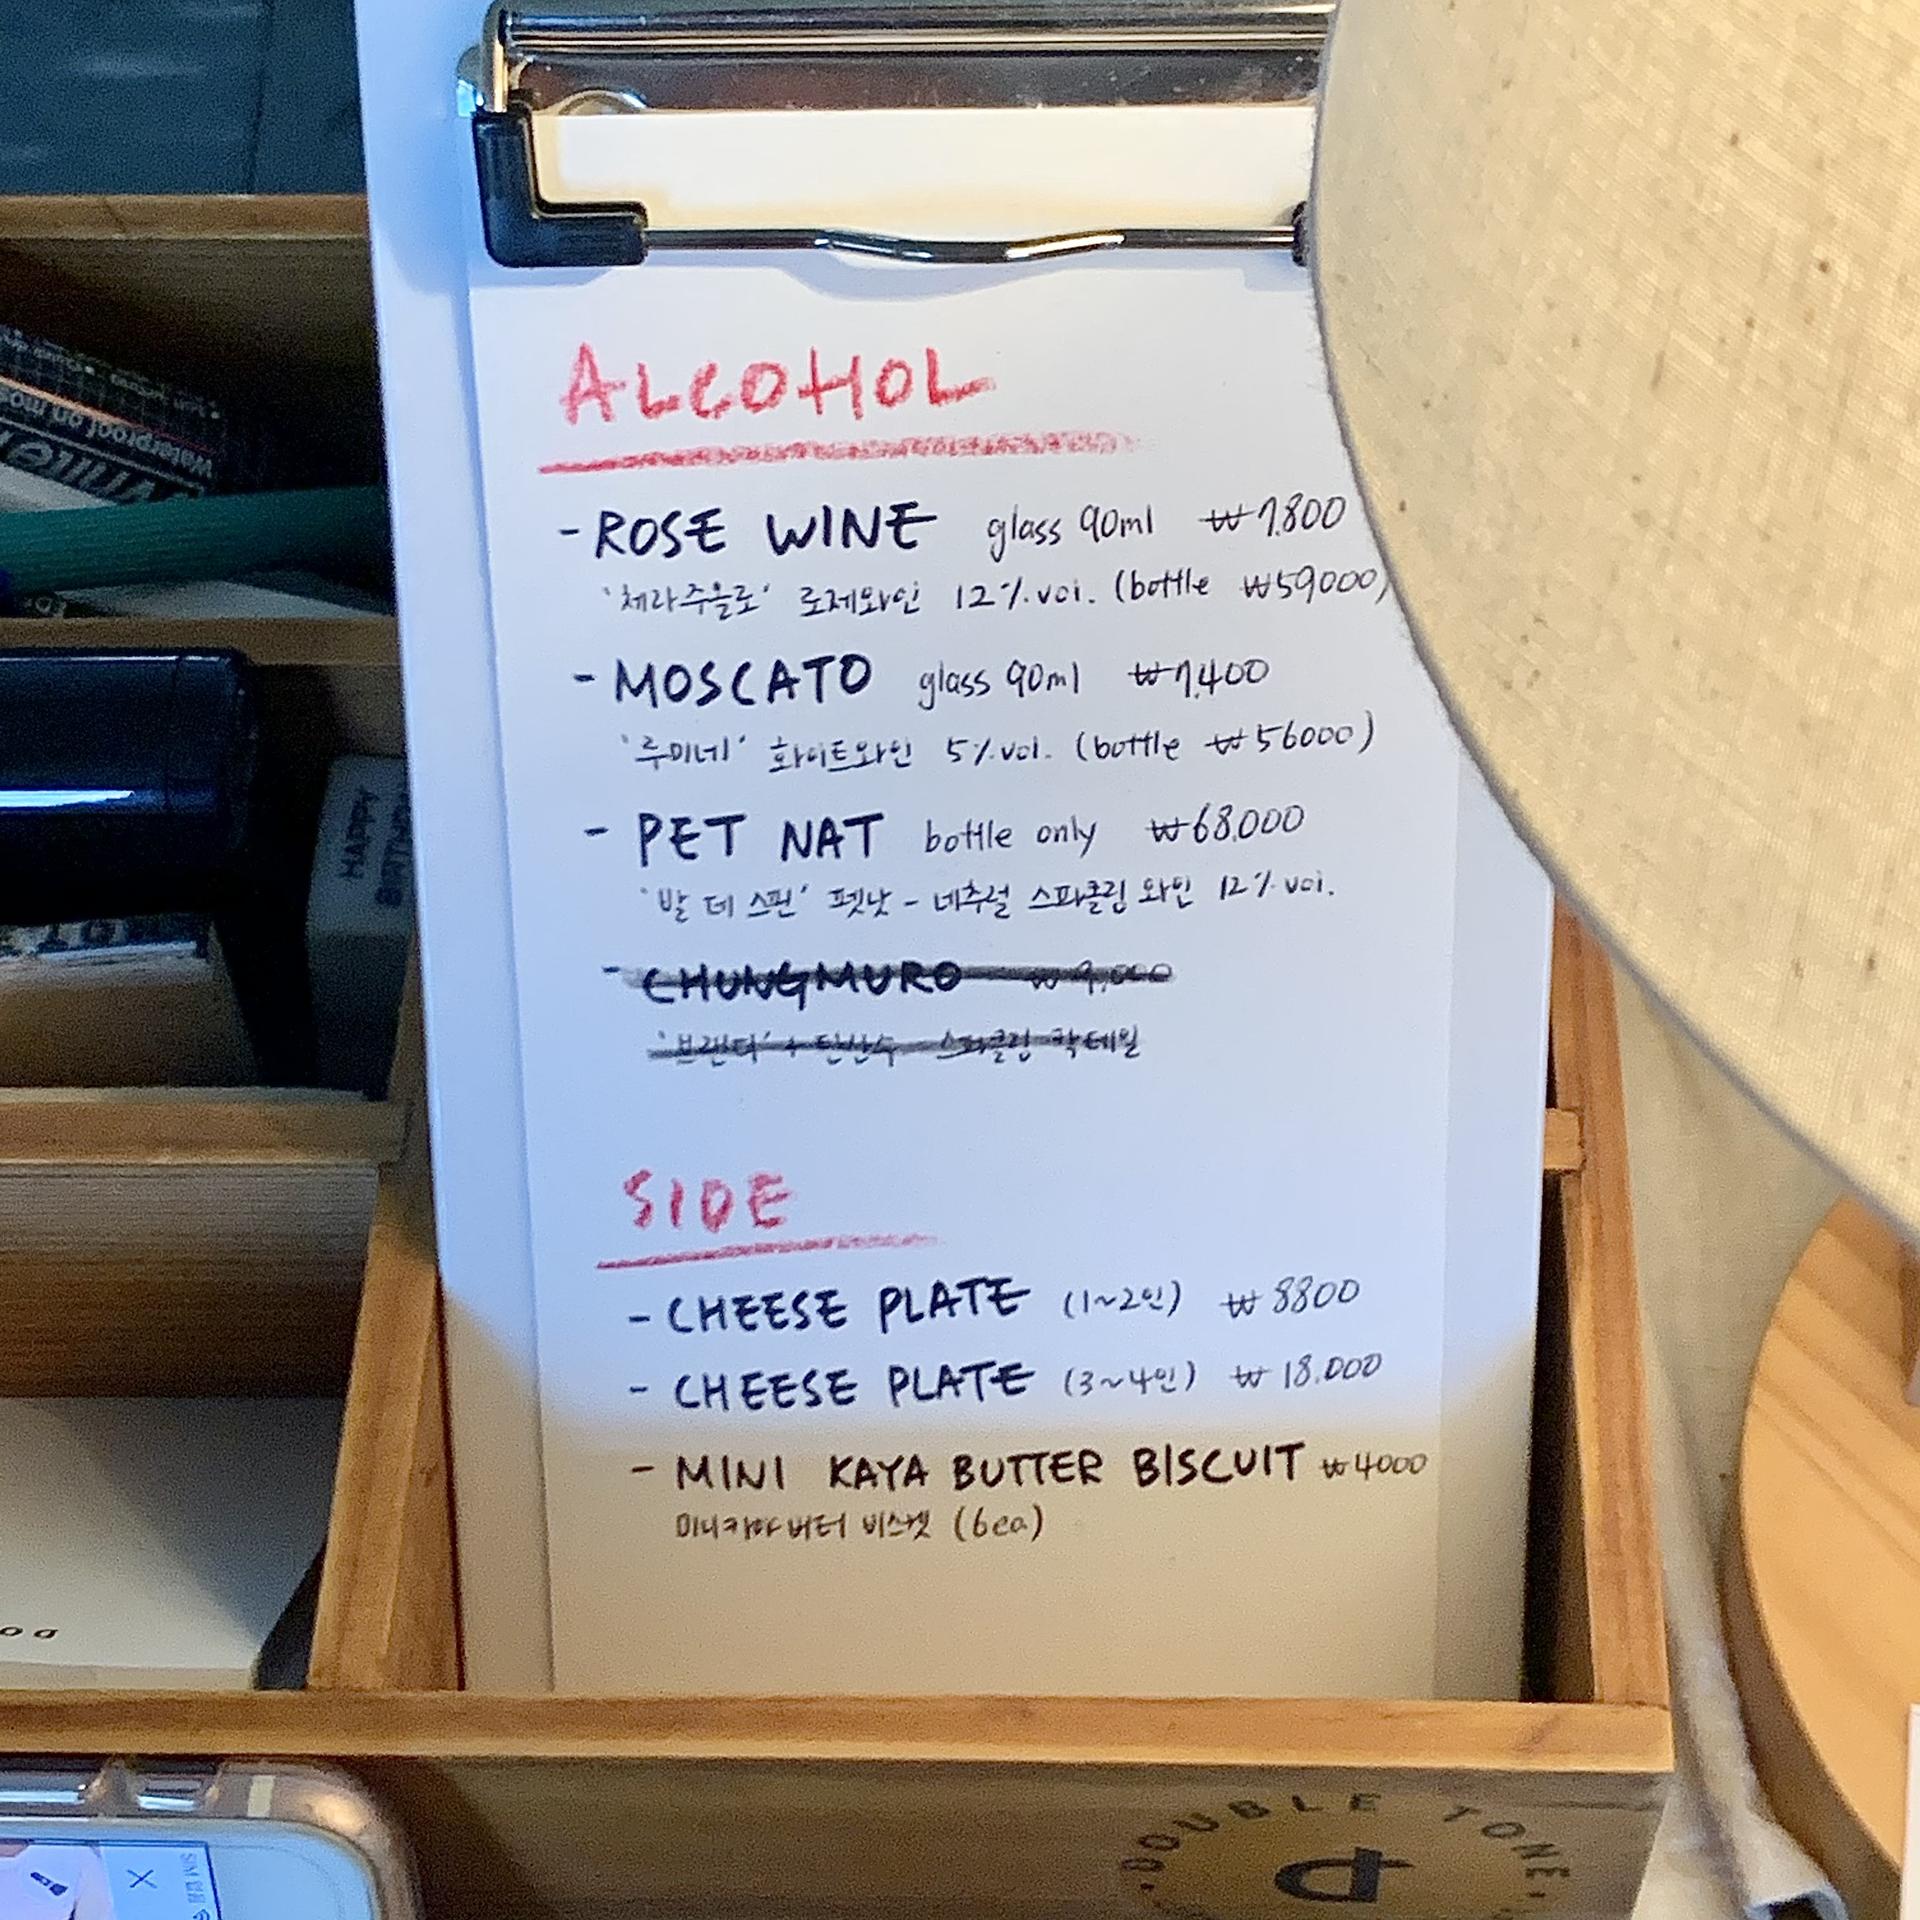 ALCOHOL
- ROSE WINE glass 90ml ₩7.800
'체라주올로' 로제와인 12%.vol. (bottle ₩59000)
- MOSCATO glass 90ml ₩7.400
'루미네' 화이트와인 5%.vol. (bottle ₩56000)
- PET NAT bottle only ₩68.000
'발 데 스핀' 펫낫 - 네추럴 스파클링 와인 12%.vol.
- CHUNGMURO ₩9,000
'브랜디' + 탄산수 - 스파클링 칵테일
SIDE
- CHEESE PLATE (1~2인) ₩8800
- CHEESE PLATE (3~4인) ₩18.000
- MINI KAYA BUTTER BISCUIT ₩4000
미니카야버터 비스켓 (6ea)
HAPPY
waterproof on mos
·DOUBLE TONE·